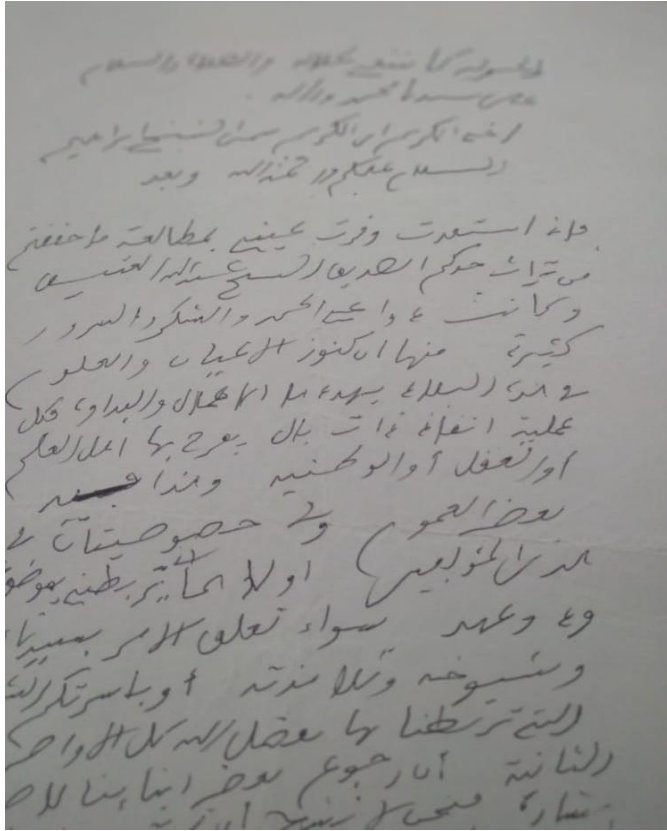 الحمد لله كما ينبغي لجلاله والصلاة والسلام
على سيدنا محمد وآله
أخي الكريم ابن الكريم سيدي الشيخ ابراهيم
السلام عليكم ورحمة الله وبعد
فإنه استعدت وقرت عيني بمطالعة ما حققتم
من تراث جدكم الصديق الشيخ عبد الله العتيق
وكانت دواعي الحمد والشكر والسرور
كثيرة منها ان كنوز الأعيان والعلوم
في هذه البلاد يهددها الإهمال والبداوة فكل
عملية انقاذ ذات بال يفرح بها اهل العلم
أو العقل أو الوطنية وهذا
بعض العموم وفي خصوصيتان في
هذين المؤلفين اولاهما تربطني
ود وعهد سواء تعلق الأمر
وشيوخه وتلامذته أو بأسرتكم
التي تربطنا بها بفضل الله كل الأواصر
الثانية أن رجوع بعض ابنائنا